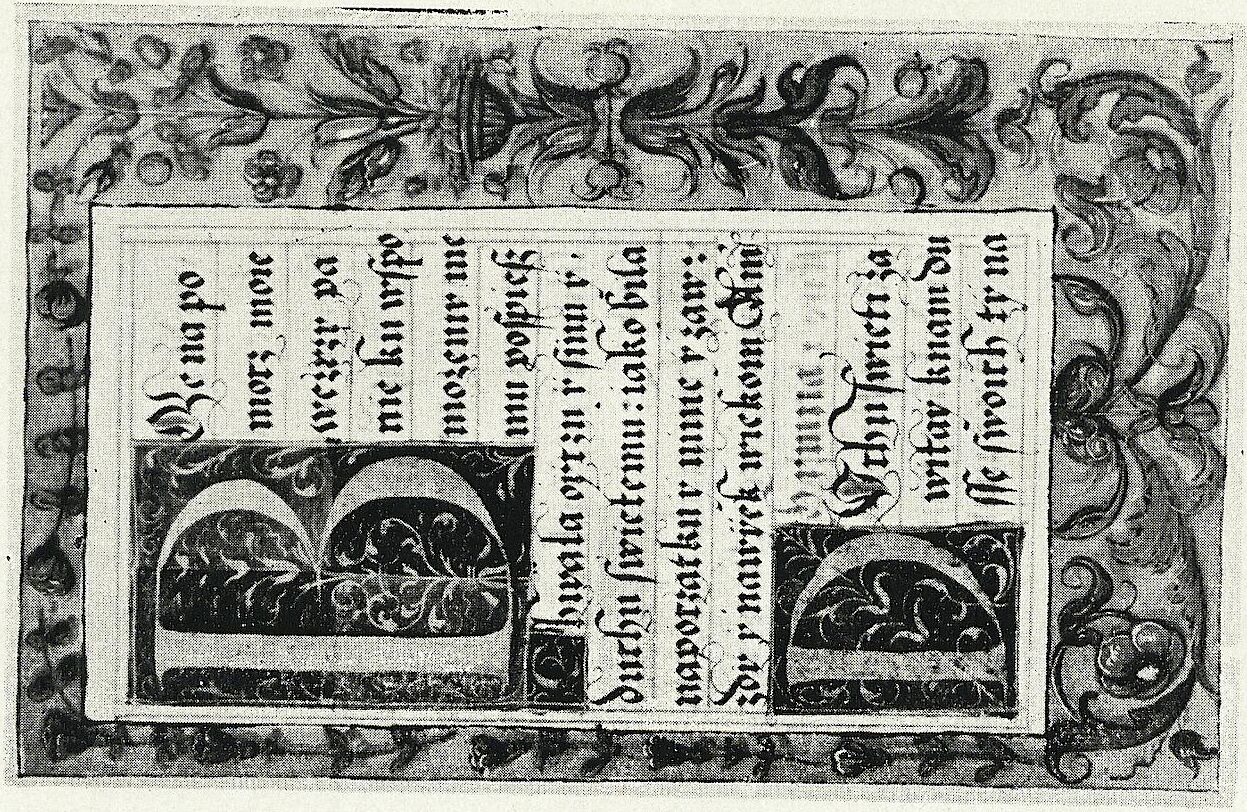 BOze na po
mocz moie
wezrzy pa
nie ku wspo
mozeniv me
mu pospiesz
Chwala oyczu y sinu y
duchu swietemu: iako bila
napoczatku y ninie y zaw:
zdy y nawyek wiekom Am
Hymnus
DUchu swieti za
witay knam du
sse swoich ty na